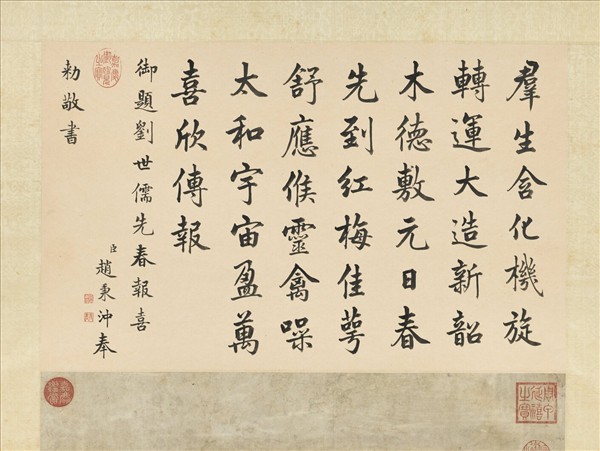 羣生含化機旋
轉運大造新韶
木德敷元日春
先到紅梅佳萼
舒應候靈禽噪
太和宇宙盈萬
喜欣傳報
御題劉世儒先春報喜
臣趙秉沖奉
勅敬書